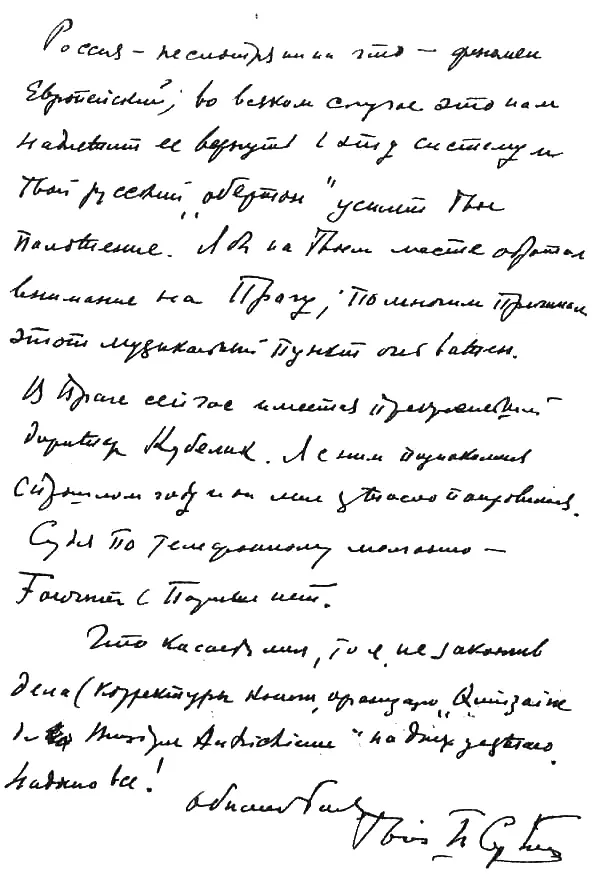 Россия — несмотря ни на что — феномен
Европейский; во всяком случае это нам
надлежит ее вернуть в эту систему и
твой русский „обертон" усилит Твое
положение. Я бы на Твоем месте обратил
внимание на Прагу; по многим причинам
этот музыкальный пункт очень важен.
В Праге сейчас имеется
дирижер Кубелик. Я с ним познакомился
в прошлом году и он мне ужасно понравился.
Судя по телефонному молчанию —
Fournier в Париже нет.
Что касается меня, то я, не закончив
дела (корректуры „Quinzaine
de la Musique Autrichienne" на днях уезжаю.
Надоело все!
обнимаю Тебя
Твой П Сув